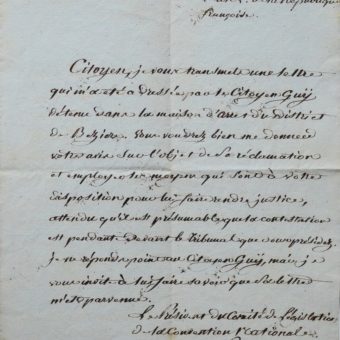 République
françoise
Citoyen, je vous transmets une lettre
qui m'a été adressée par le Citoyen Guÿ
détenu dans la maison d'arret du district
de Beziers. Vous voudrez bien me donner
votre avis sur l'objet de sa réclamation
et employer les moyens qui sont à votre
disposition pour lui faire rendre justice,
attendu qu'il est présumable que la contestation
est pendante devant le tribunal que vous présidez,
Je ne répondrai point au Citoyen Guÿ, mais je
vous invite à lui faire savoir que sa lettre
m'est parvenue.
Le Président du Comité de Législation
de la Convention Nationale